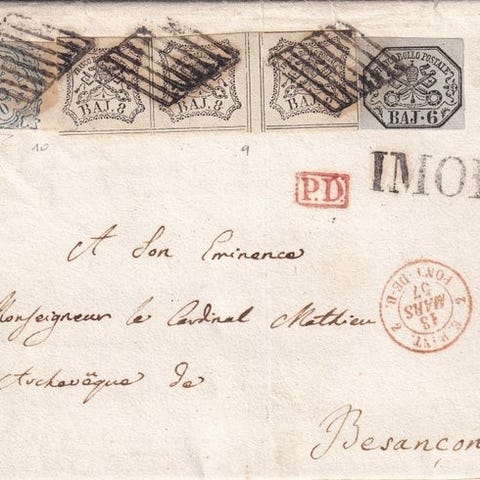 BAJ. 8
BAJ. 8
BAJ. 8
BOLLO POSTALE
BAJ. 6
10
9
P.D.
IMO
A Son Eminence
Monseigneur le Cardinal Mathieu
Archevêque de
Besançon
2 E.PIVT. 2
13
MARS
57
PONT-DE-B.